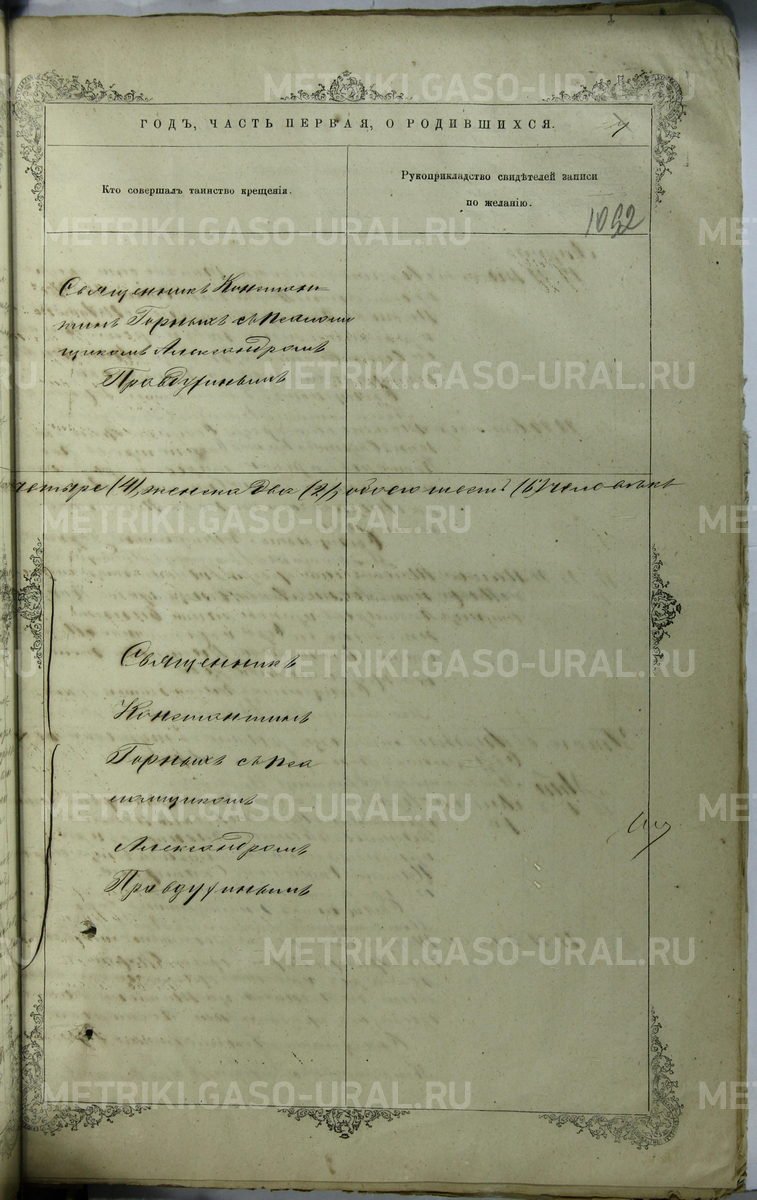 ГОДЪ, ЧАСТЬ ПЕРВАЯ, О РОДИВШИХСЯ.
Кто совершалъ таинство крещенія.
Рукоприкладство свидѣтелей записи
по желанію.
1052
Священникъ Констан-
тинъ Горныхъ съ псалом
щикомъ Александромъ
Правдухинымъ
четыре (4), женска два (2), обоего шесть (6) человѣкъ
Священникъ
Константинъ
Горныхъ съ пса
ломщикомъ
Александромъ
Правдухинымъ
METRIKI.GASO-URAL.RU